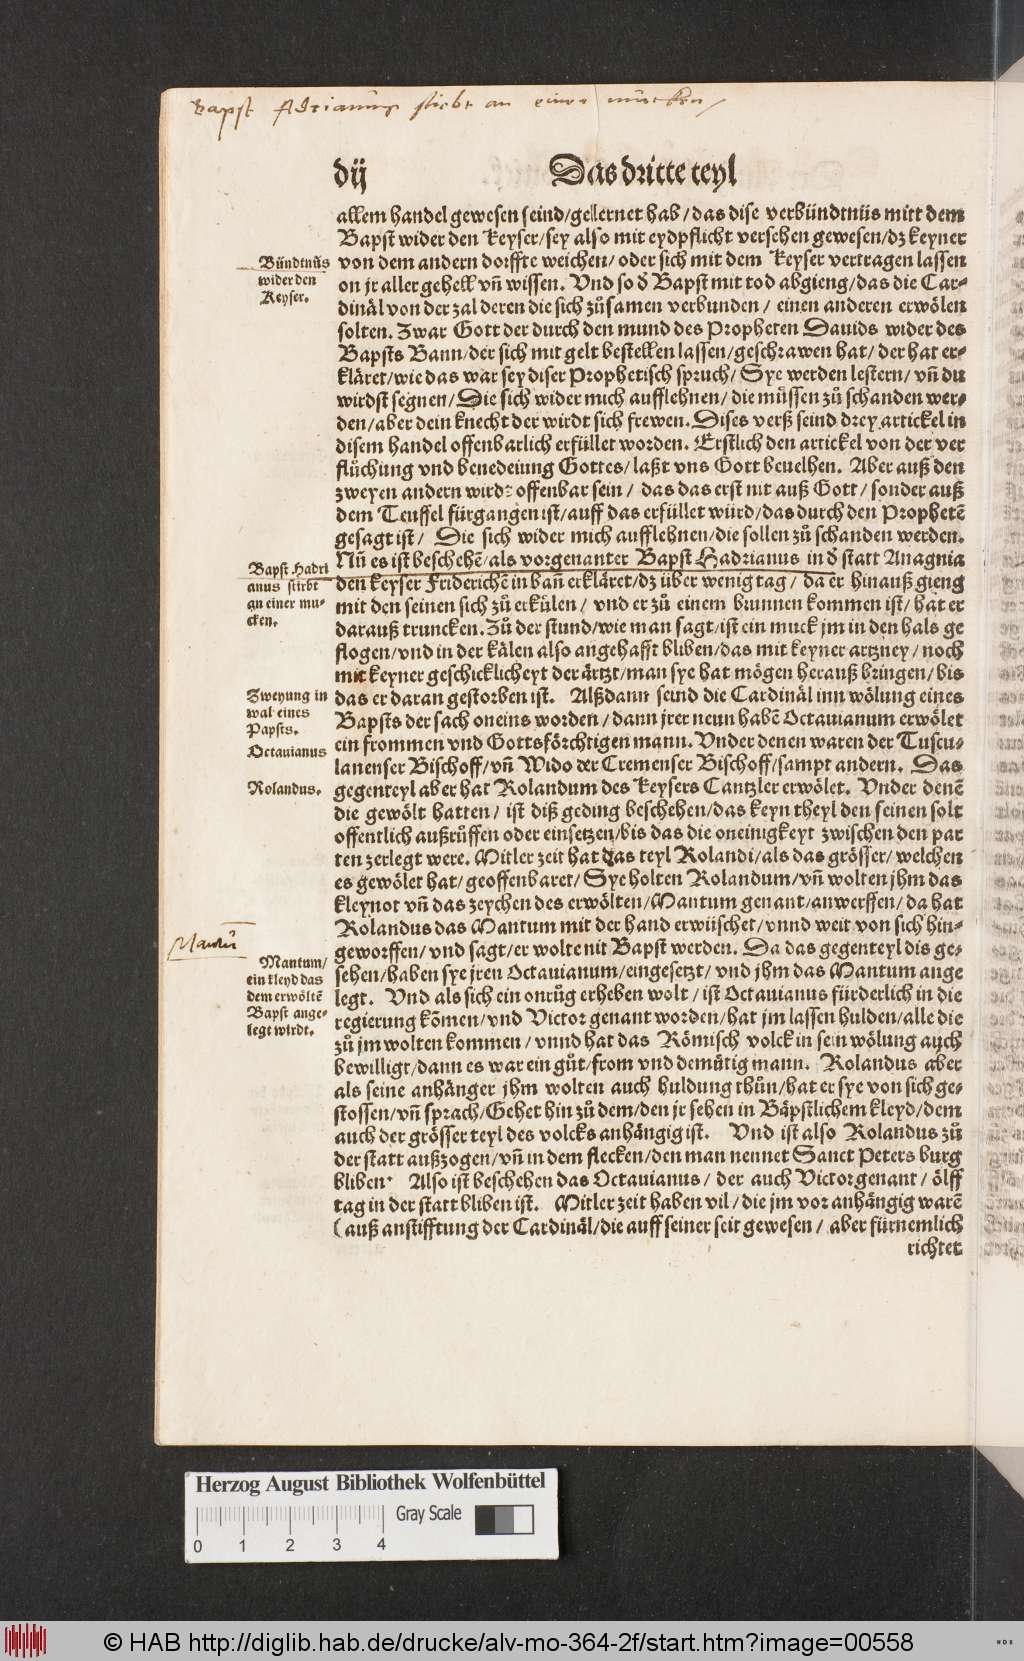 Bapst Adrianus stirbt an einer mucken/
dij
Das dritte teyl
allem handel gewesen seind/gelernet hab/das dise verbündtnüs mitt dem
Bapst wider den Keyser/sey also mit eydpflicht versehen gewesen/dz keyner
von dem andern dorffte weichen/ oder sich mit dem Keyser vertragen lassen
on jr aller gehell vñ wissen. Vnd so d̕ Bapst mit tod abgieng/das die Car-
dinäl von der zal deren die sich zůsamen verbunden/ einen anderen erwölen
solten. Zwar Gott der durch den mund des Propheten Dauids wider des
Bapsts Bann/der sich mit gelt bestellen lassen/geschrawen hat/ der hat er-
kläret/wie das war sey diser Prophetisch spruch/ Sye werden lestern/ vñ du
wirdst segnen/ Die sich wider mich aufflehnen/ die müssen zů schanden wer-
den/aber dein knecht der wirdt sich frewen. Dises verß seind drey artickel in
disem handel offenbarlich erfüllet worden. Erstlich den artickel von der ver
flůchung vnd benedeiung Gottes/ laßt vns Gott beuelhen. Aber auß den
zweyen andern wirdt offenbar sein/ das das erst nit auß Gott/ sonder auß
dem Teuffel fürgangen ist/auff das erfüllet würd/das durch den Prophetẽ
gesagt ist/ Die sich wider mich aufflehnen/die sollen zů schanden werden.
Nũ es ist beschehẽ/als vorgenanter Bapst Hadrianus in d̕ statt Anagnia
den keyser Friderichẽ in bañ erkläret/dz über wenig tag/ da er hinauß gieng
mit den seinen sich zů erkülen/ vnd er zů einem brunnen kommen ist/ hat er
darauß truncken. Zů der stund/wie man sagt/ist ein muck jm in den hals ge
flogen/vnd in der kälen also angehafft bliben/das mit keyner artzney/ noch
mit keyner geschicklicheyt der ärtzt/man sye hat mögen herauß bringen/ bis
das er daran gestorben ist. Alßdann seind die Cardinäl inn wölung eines
Bapsts der sach oneins worden/ dann jrer neun habẽ Octauianum erwölet
ein frommen vnd Gottsförchtigen mann. Vnder denen waren der Tuscu-
lanenser Bischoff/vñ Wido der Cremenser Bischoff/sampt andern. Das
gegenteyl aber hat Rolandum des Keysers Cantzler erwölet. Vnder denẽ
die gewölt hatten/ ist diß geding beschehen/das keyn theyl den seinen solt
offentlich außrůffen oder einsetzen/bis das die oneinigkeyt zwischen den par
ten zerlegt were. Mitler zeit hat das teyl Rolandi/als das grösser/ welchen
es gewölet hat/ geoffenbaret/ Sye holten Rolandum/vñ wolten jhm das
kleynot vñ das zeychen des erwölten/Mantum genant/anwerffen/ da hat
Rolandus das Mantum mit der hand erwüschet/vnnd weit von sich hin-
geworffen/ vnd sagt/er wolte nit Bapst werden. Da das gegenteyl dis ge-
sehen/haben sye jren Octauianum/eingesetzt/ vnd jhm das Mantum ange
legt. Vnd als sich ein onrůg erheben wolt/ ist Octauianus fürderlich in die
regierung kõmen/vnd Victor genant worden/hat jm lassen hulden/alle die
zů jm wolten kommen/ vnnd hat das Römisch volck in sein wölung auch
bewilligt/dann es war ein gůt/from vnd demütig mann. Rolandus aber
als seine anhänger jhm wolten auch huldung thůn/hat er sye von sich ge-
stossen/vñ sprach/Gehet hin zů dem/den jr sehen in Bäpstlichem kleyd/dem
auch der grösser teyl des volcks anhängig ist. Vnd ist also Rolandus zů
der statt außzogen/vñ in dem flecken/den man nennet Sanct Peters burg
bliben. Also ist beschehen das Octauianus/ der auch Victor genant/ ölff
tag in der statt bliben ist. Mitler zeit haben vil/ die jm vor anhängig warẽ
(auß anstifftung der Cardinäl/die auff seiner seit gewesen/ aber fürnemlich
richtet
Bündtnüs
wider den
Keyser.
Bapst Hadri
anus stirbt
an einer mu-
cken.
Zweyung in
wal eines
Papsts.
Octauianus
Rolandus.
Mantũ
Mantum/
ein kleyd das
dem erwöltẽ
Bapst ange-
legt wirdt.
Herzog August Bibliothek Wolfenbüttel
Gray Scale
0 1 2 3 4
© HAB http://diglib.hab.de/drucke/alv-mo-364-2f/start.htm?image=00558